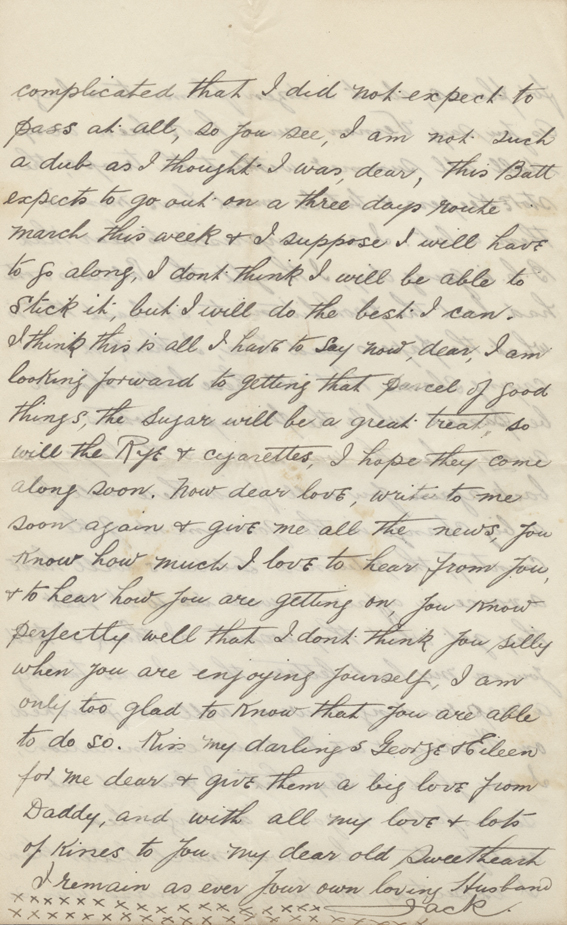 complicated that I did not expect to
pass at all, so you see, I am not such
a dub as I thought I was, dear, this Batt
expects to go out on a three days route
march this week & I suppose I will have
to go along, I dont think I will be able to
stick it, but I will do the best I can.
I think this is all I have to say now, dear, I am
looking forward to getting that parcel of good
things, the sugar will be a great treat, so
will the Rye & cigarettes, I hope they come
along soon. Now dear love, write to me
soon again & give me all the news, you
know how much I love to hear from you,
& to hear how you are getting on, you know
perfectly well that I dont think you silly
when you are enjoying yourself, I am
only too glad to know that you are able
to do so. Kiss my darlings George & Eileen
for me dear & give them a big love from
Daddy, and with all my love & lots
of kisses to you my dear old sweetheart
I remain as ever your own loving Husband
xxxxxxxxxxxxxxxxxxxxxx Jack.
xxxxxxxxxxxxxxxxxxxxxxxxxxxxx